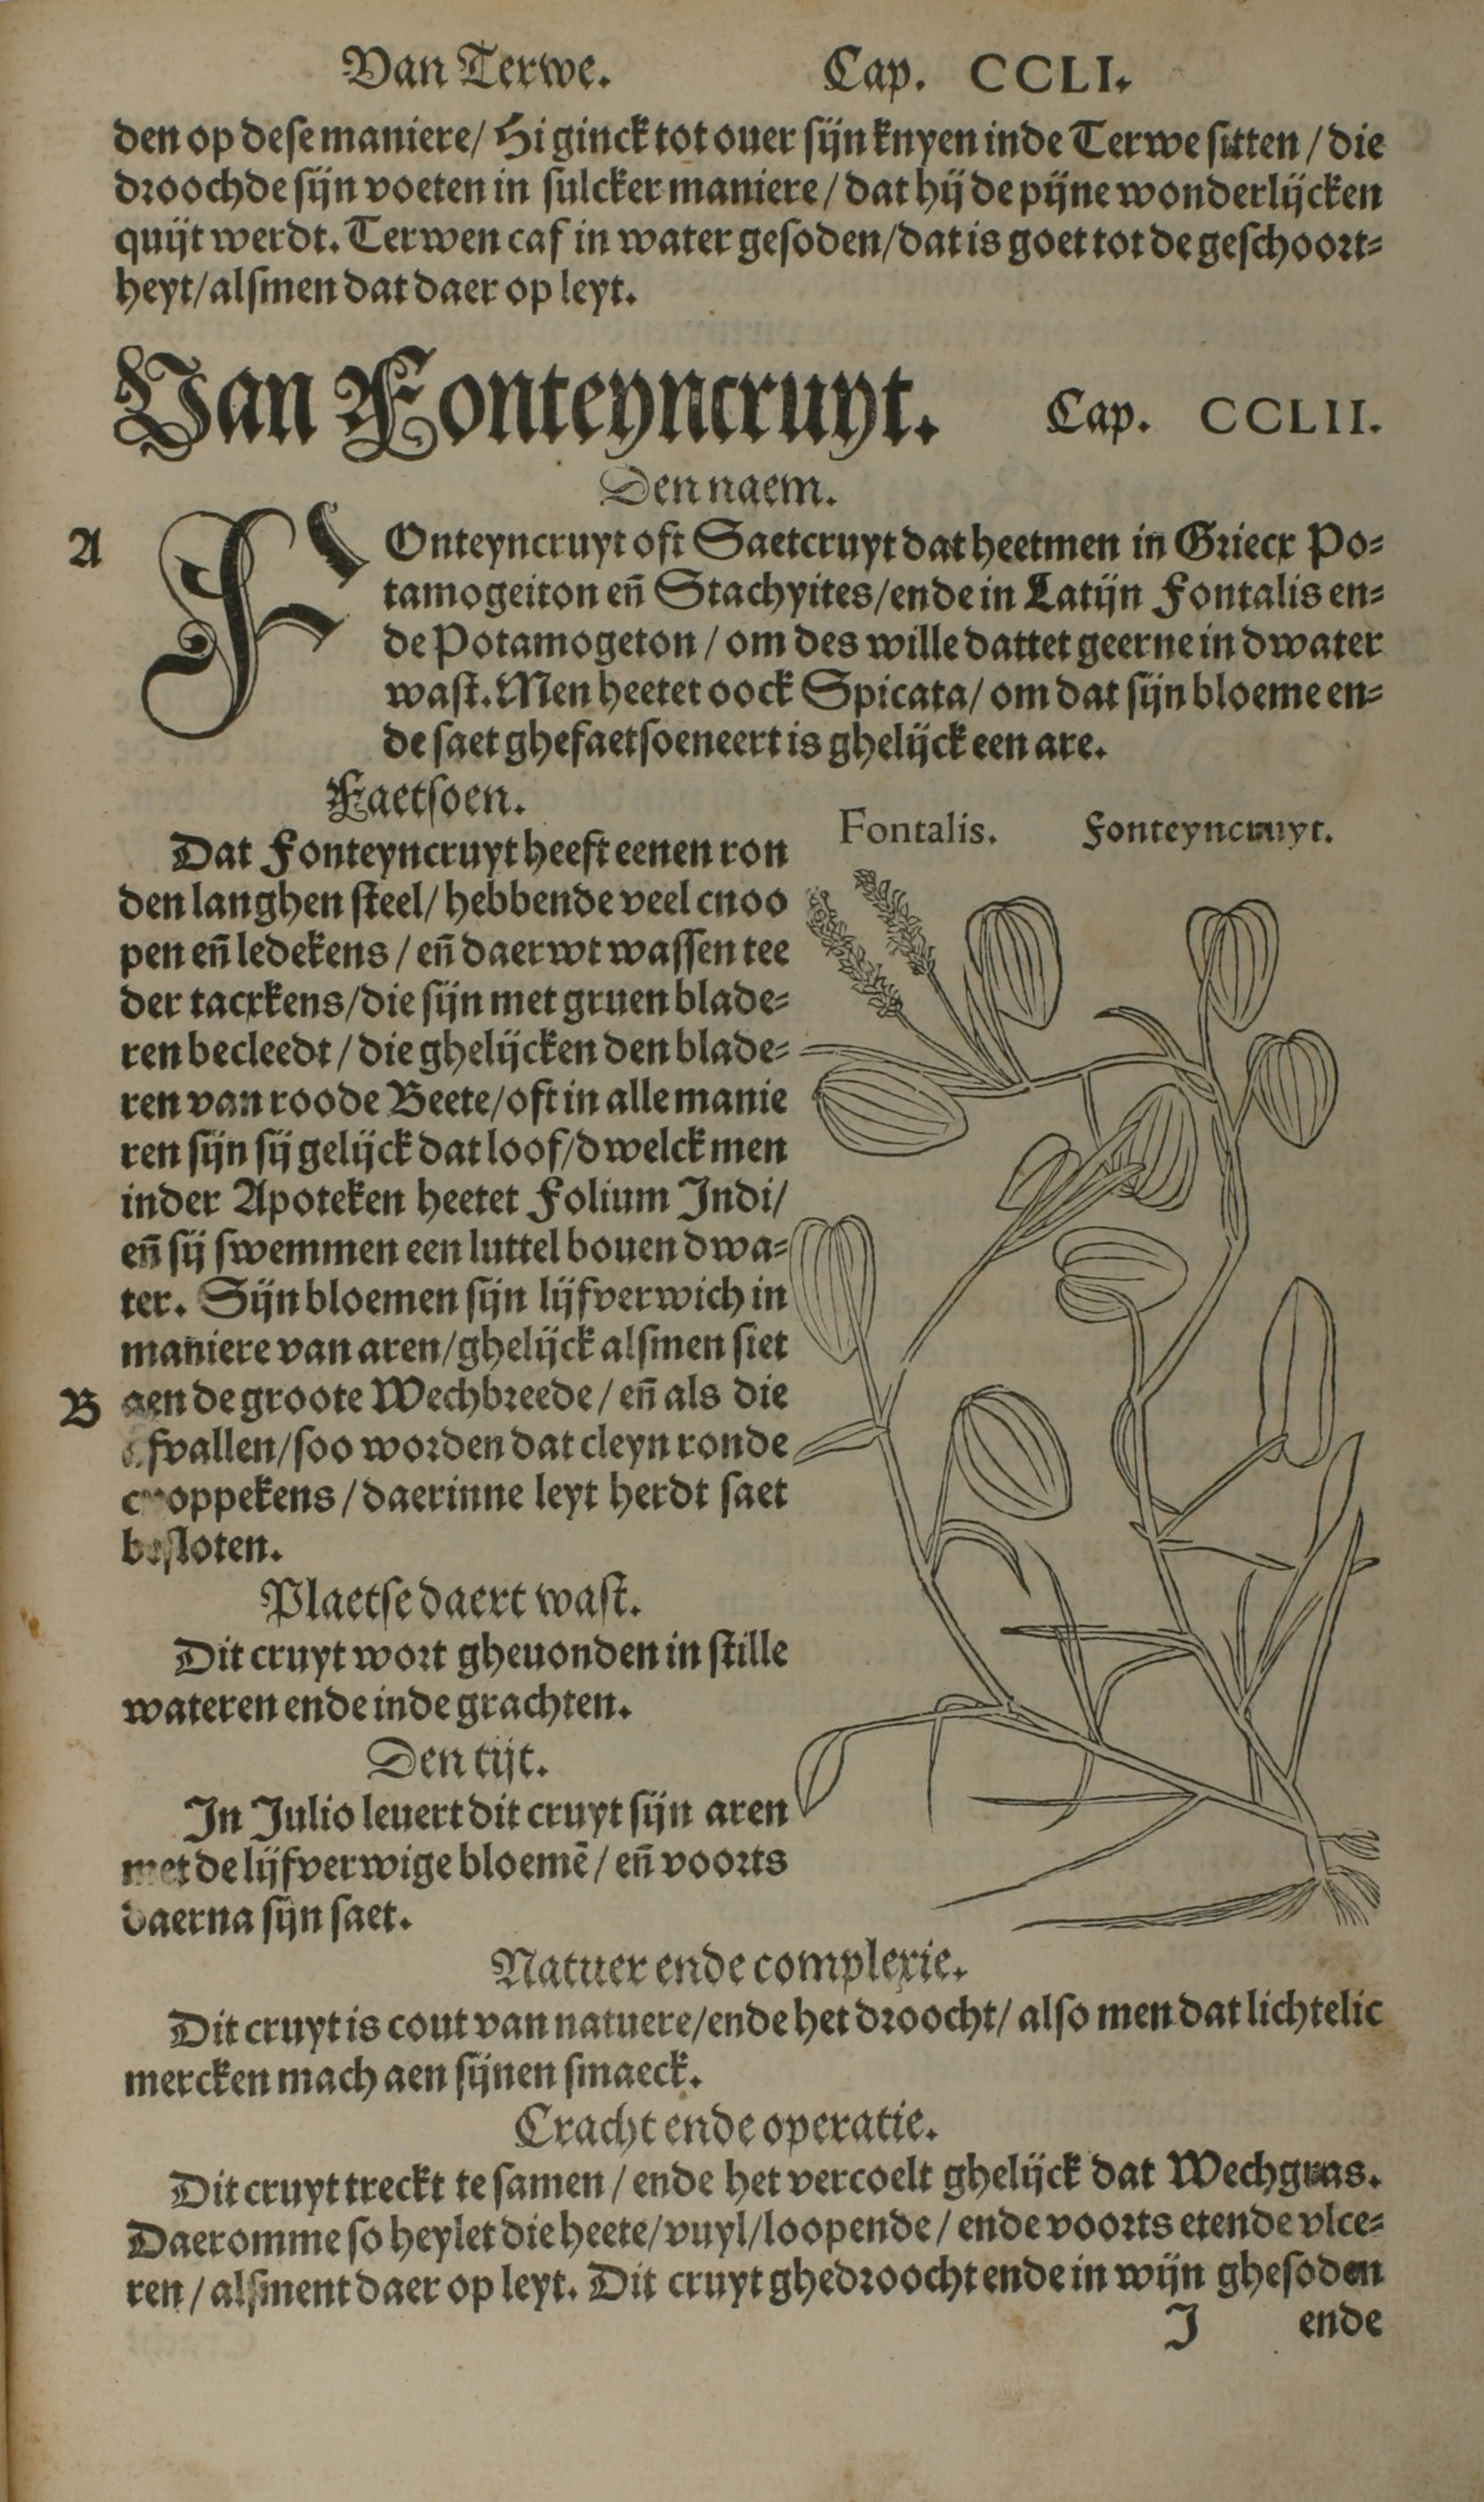 Van Terwe. Cap. CCLI.
den op dese maniere/ Hi ginck tot ouer sijn knyen inde Terwe sitten / die
droochde sijn voeten in sulcker maniere / dat hij de pijne wonderlijcken
quijt werdt. Terwen caf in water gesoden/dat is goet tot de geschoort-
heyt/alsmen dat daer op leyt.
Van Fonteyncruyt. Cap. CCLII.
Den naem.
A FOnteyncruyt oft Saetcruyt dat heetmen in Griecx Po-
tamogeiton en̄ Stachyites/ende in Latijn Fontalis en-
de Potamogeton / om des wille dattet geerne in dwater
wast. Men heetet oock Spicata/ om dat sijn bloeme en-
de saet ghefaetsoeneert is ghelijck een are.
Faetsoen.
Dat Fonteyncruyt heeft eenen ron
den langhen steel/ hebbende veel cnoo
pen en̄ ledekens / en̄ daer wt wassen tee
der tacxkens/die sijn met gruen blade-
ren becleedt / die ghelijcken den blade-
ren van roode Beete/oft in alle manie
ren sijn sij gelijck dat loof/dwelck men
inder Apoteken heetet Folium Indi/
en̄ sij swemmen een luttel bouen dwa-
ter. Sijn bloemen sijn lijfverwich in
maniere van aren/ghelijck alsmen siet
B aen de groote Wechbreede / en̄ als die
afvallen/soo worden dat cleyn ronde
cnoppekens / daerinne leyt herdt saet
besloten.
Fontalis. Fonteyncruyt.
Plaetse daert wast.
Dit cruyt wort gheuonden in stille
wateren ende inde grachten.
Den tijt.
In Julio leuert dit cruyt sijn aren
met de lijfverwige bloemē / en̄ voorts
daerna sijn saet.
Natuer ende complexie.
Dit cruyt is cout van natuere/ende het droocht/ also men dat lichtelic
mercken mach aen sijnen smaeck.
Cracht ende operatie.
Dit cruyt treckt te samen / ende het vercoelt ghelijck dat Wechgras.
Daeromme so heylet die heete/vuyl/loopende / ende voorts etende vlce-
ren / alsment daer op leyt. Dit cruyt ghedroocht ende in wijn ghesoden
J ende